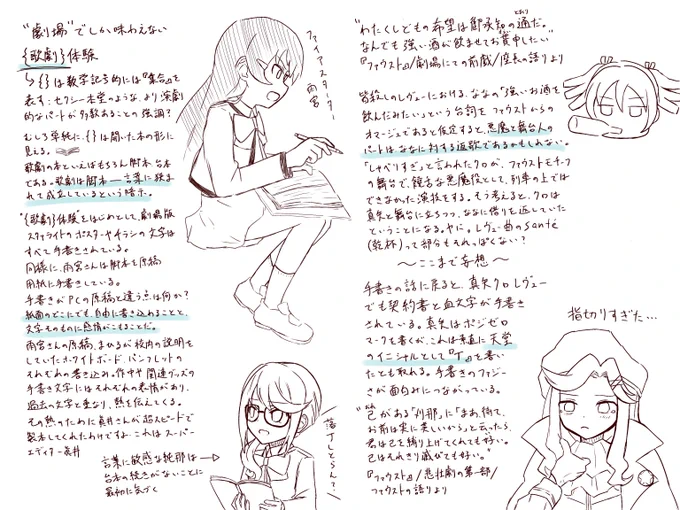 "劇場"でしか味わえない
{歌劇}体験
↳{}は数学記号的には『集合』を
表す:セクシー本堂のような、より演劇
的なパートが多数あることの強調?
むしろ単純に、{}は開いた本の形に
見える。
歌劇の本といえばもちろん脚本、台本
である。歌劇は脚本―言葉に挟ま
れて成立しているという暗示。
"{歌劇}体験"をはじめとして、劇場版
スタァライトのポスターやチラシの文字は
すべて手書きされている。
同様に、雨宮さんは脚本を原稿
用紙に手書きしている。
手書きがPCの原稿と違う点は何か?
紙面のどこにでも、自由に書き込めることと、
文字そのものに感情がこもることだ。
雨宮さんの原稿、まひるが校内の説明を
していたホワイトボード、パンフレットの
それぞれの書き込み。作中や関連グッズの
手書き文字にはそれぞれの表情があり、
過去の文字と重なり、熱を伝えてくる。
その熱のために眞井さんが超スピードで
製本してくれたわけですね…これはスーパー
エディター眞井
ファイアスターター
雨宮
落丁しとらんて
言葉に敏感な純那は→
台本の続きがないことに
最初に気づく
"わたくしどもの希望は御承知の通だ。
とおり
なんでも強い酒が飲ませてお貰申したい"
『ファウスト』/劇場にての前戯/座長の語りより
皆殺しのレヴューにおける、ななの「強いお酒を
飲んだみたい」という台詞をファウストからの
オマージュであると仮定すると、悪魔と舞台人の
パートはななに対する返歌であるかもしれない。
「しゃべりすぎ」と言われたクロが、ファウストモチーフ
の舞台で、饒舌な悪魔役として、列車の上では
できなかった演技をする。そう考えると、クロは
真矢と舞台に立ちつつ、ななに借りを返していた
ということになる。ヤバ。レヴュー曲のsanté
(乾杯)って部分もそれっぽくない?
～ここまで妄想～
手書きの話に戻ると、真矢クロレヴュー
でも契約書と血文字が手書き
されている。真矢はポジゼロ
マークを書くが、これは素直に天堂
のイニシャルとして『T』を書い
たとも取れる。手書きのファジー
さが面白みにつながっている。
指切りすぎた…
"己がある「刹那」に「まあ、待て、
お前は実に美しいから」と云ったら、
君は己を縛り上げてくれても好い。
己はそれきり滅びても好い。"
『ファウスト』/悲壮劇の第一部/
ファウストの語りより